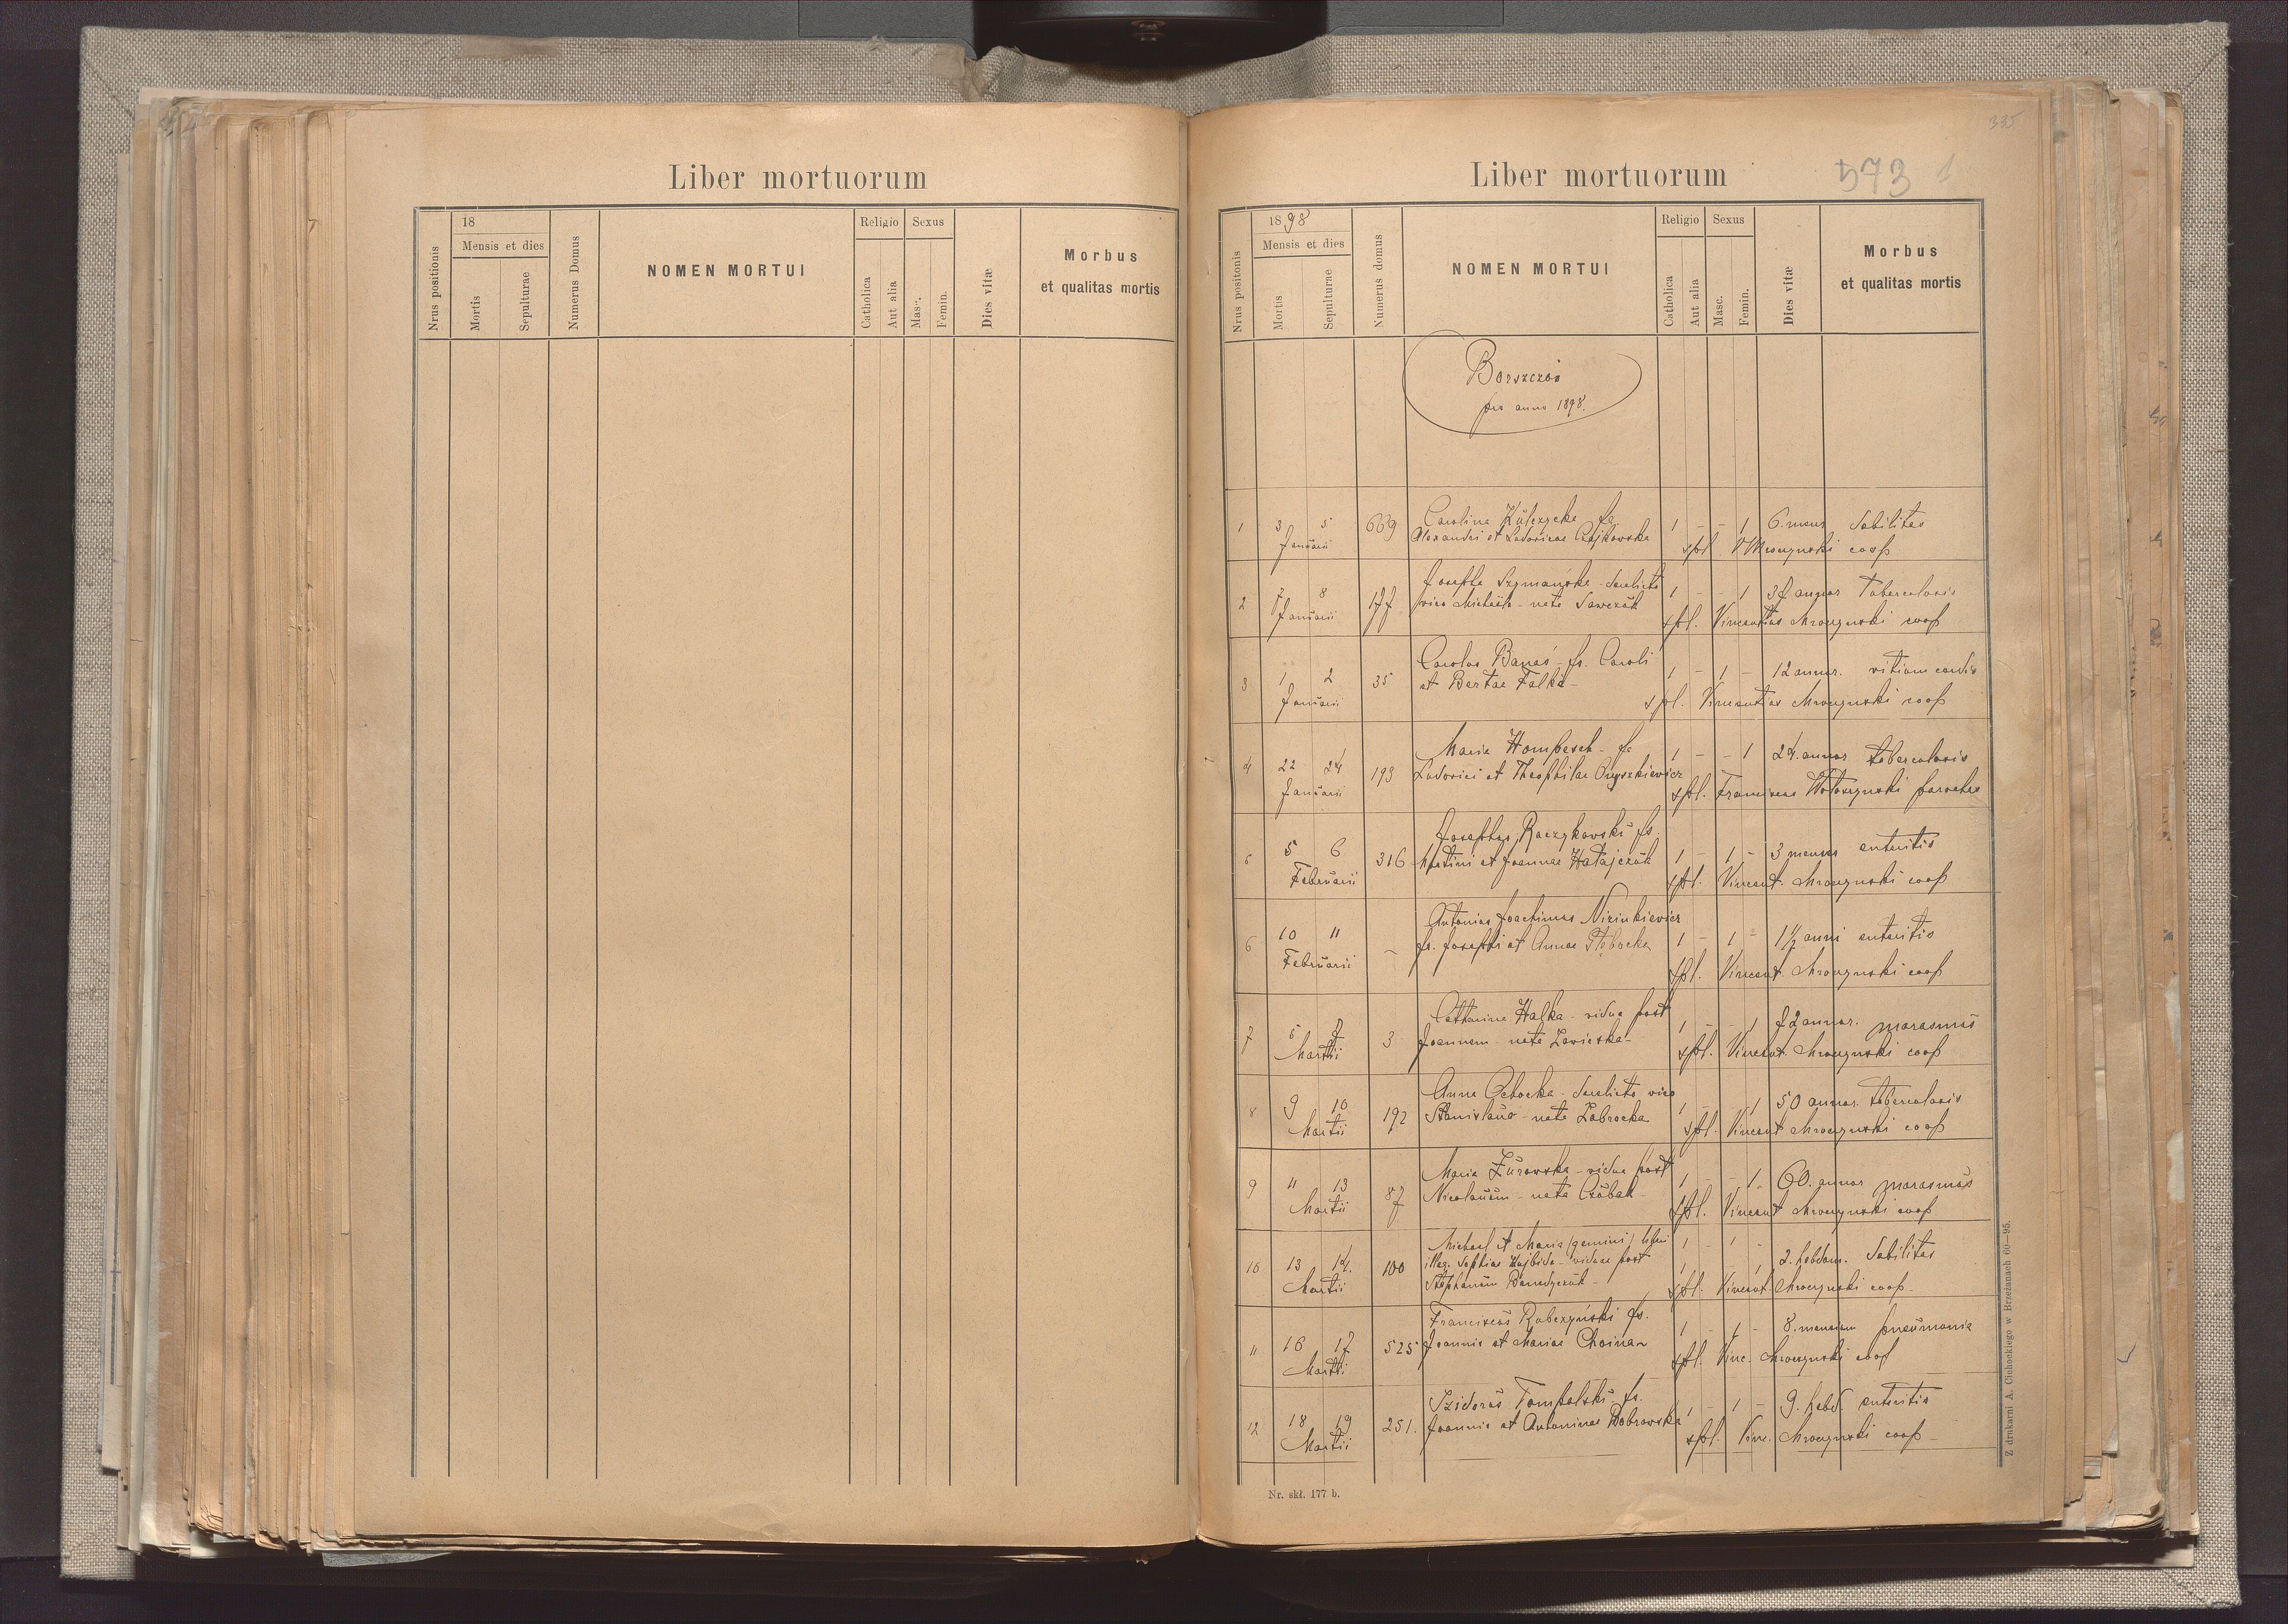 Liber mortuorum
Nrus positionis
18
Mensis et dies
Mortis
Sepulturae
Numerus Domus
NOMEN MORTUI
Religio
Catholica
Aut alia
Sexus
Masc.
Femin.
Dies vitæ
Morbus
et qualitas mortis
335
573
Liber mortuorum
Nrus positonis
1898
Mensis et dies
Mortis
Sepulturae
Numerus domus
NOMEN MORTUI
Religio
Catholica
Aut alia
Sexus
Masc.
Femin.
Dies vitæ
Morbus
et qualitas mortis
pro anno 1898.
1 3 5 669 Carolina fa. 1 - - 1 6. mens debilitas
Januarii Alexandri et Ludovicae Czajkowska spl. V Mroczynski coop
2 7 8 177 Josepha Szymańska - derelicta 1 - - 1 37 annor Tuberculosis
Januarii viro Michaele - nata Sawczuk spl. Vincentius Mroczynski coop
3 1 2 35 Carolus Banaś - fs. Caroli 1 - 1 - 12 annor. vitium cordis
Januarii et Bertae Falka - spl. Vincentius Mroczynski coop
4 22 24 193 Maria Hompesch - fa 1 - - 1 24. annor tuberculosis
Januarii Ludovici et Theophilae Onyszkiewicz spl. Franciscus Wołoszynski parochus
5 5 6 316 Josephus Raczykowski fs. 1 - 1 - 3 menses enteritis
Februarii Martini et Joannae Hatajczuk spl. Vincent. Mroczynski coop
6 10 11 - Antonius Joachimus Nizinkiewicz 1 - 1 - 1 1/2 anni enteritis
Februarii fs. Josephi et Annae spl. Vincent Mroczynski coop
7 5 7 3 Catharina Halka - vidua post 1 - - 1 72 annor. marasmus
Martii Joannem nata Zawierska - spl. Vincent Mroczynski coop
8 9 10 192 Anna derelicta viro 1 - - 1 50 annor. tuberculosis
Martii Stanislauo - nata Zabrocka spl. Vincent Mroczynski coop
9 11 13 87 Maria Żurowska - vidua post 1 - - 1 60. annor marasmus
Martii Nicolauum - nata Czubak - spl. Vincent Mroczynski coop
10 13 14. 100 Michael et Maria (gemini) 1 - 1 -
illeg. Sophiae - viduae post 1 1 2. hebdom. debilitas
Martii Stephanum Benedyczuk - spl. Vincent Mroczynski coop -
11 16 17 525 Franciscus Rabczyński fs. 1 - 1 - 8. mensium pneumonia
Martii Joannis et Mariae Choina spl. Vinc. Mroczynski coop
12 18 19 251. Izidorus Tompolski fs. 1 - 1 - 9. hebd. enteritis
Martii Joannis et Antoninae Dobrowska spl. Vinc. Mroczynski coop -
Nr. skł. 177 b.
Z drukarni A. Ciehockiego w Brzeżanach 60—95.